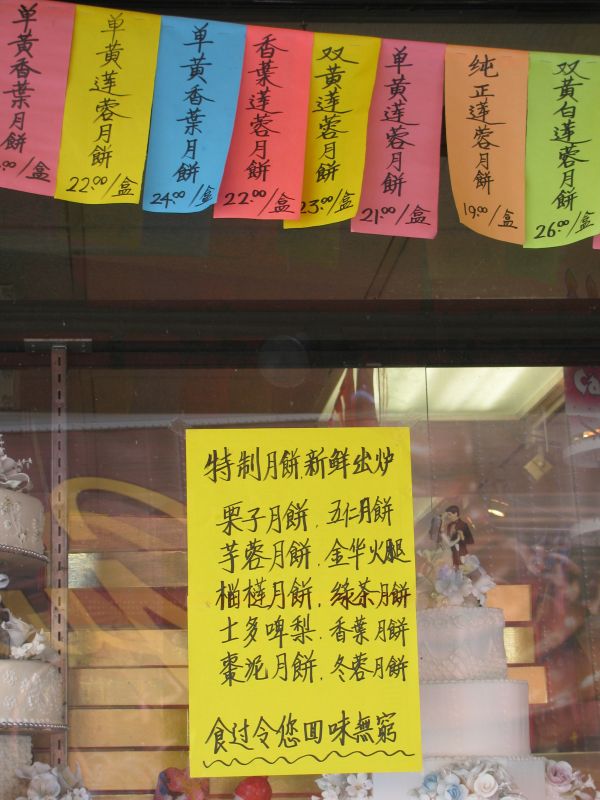 单黄香葉月餅
.00/盒
单黄莲蓉月餅
22.00/盒
单黄香葉月餅
24.00/盒
香葉莲蓉月餅
22.00/盒
双黄莲蓉月餅
23.00/盒
单黄莲蓉月餅
21.00/盒
纯正莲蓉月餅
19.00/盒
双黄白莲蓉月餅
26.00/盒
Ca
特制月餅.新鲜出炉
栗子月餅.五仁月餅
芋蓉月餅.金华火腿
榴梿月餅.绿茶月餅
士多啤梨.香葉月餅
棗泥月餅.冬蓉月餅
食过令您回味無窮